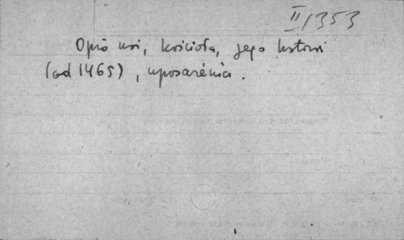 II/1353
Opis wsi, kościoła, jego historii
(od 1465), wyposażenia.